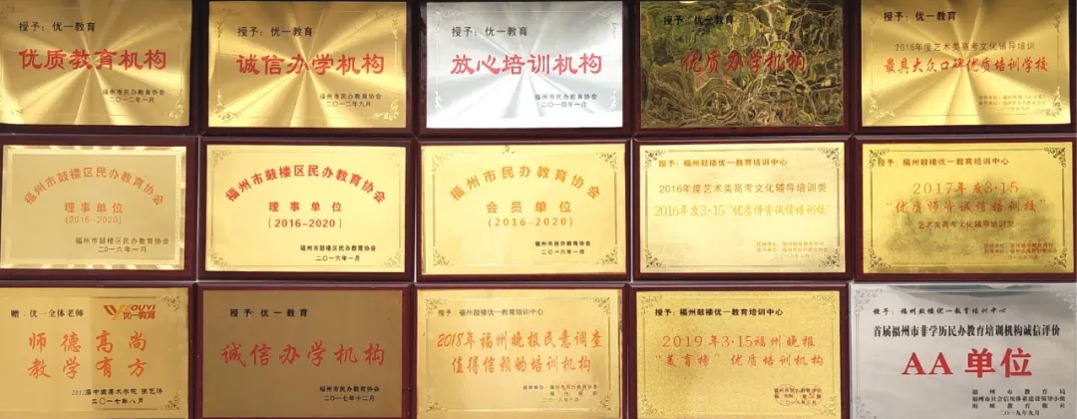 授予：优一教育
优质教育机构
福州市民办教育协会
二〇一二年一月
授予：优一教育
诚信办学机构
福州市民办教育协会
二〇一二年九月
授予：优一教育
放心培训机构
福州市民办教育协会
二〇一四年一月
授予：优一教育
优质办学机构
授予：优一教育
2015年度艺术类高考文化辅导培训
最具大众口碑优质培训学校
福州市鼓楼区民办教育协会
理事单位
(2016-2020)
福州市鼓楼区民办教育协会
二〇一六年一月
福州市鼓楼区民办教育协会
理事单位
(2016-2020)
福州市鼓楼区民办教育协会
二〇一六年一月
福州市民办教育协会
会员单位
(2016-2020)
福州市民办教育协会
二〇一六年一月
授予：福州鼓楼优一教育培训中心
2016年度艺术类高考文化辅导培训类
2016年度3·15“优质师资诚信培训校”
授予：福州鼓楼优一教育培训中心
2017年度3·15
“优质师资诚信培训校”
艺术类高考文化辅导培训类
赠：优一全体老师
YOUYI
优一教育
师德高尚
教学有方
二〇一七年八月
授予：优一教育
诚信办学机构
福州市民办教育协会
二〇一七年十二月
授予：福州鼓楼优一教育培训中心
2018年福州晚报民意调查
值得信赖的培训机构
授予：福州鼓楼优一教育培训中心
2019年3·15福州晚报
“美育榜”优质培训机构
授予：福州鼓楼优一教育培训中心
首届福州市非学历民办教育培训机构诚信评价
AA单位
福州市教育局
福州市社会信用体系建设领导小组
海峡教育报社
二〇一九年九月